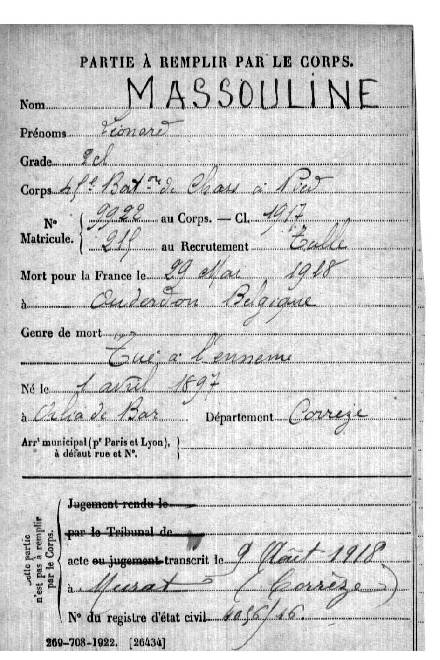 PARTIE À REMPLIR PAR LE CORPS.
Nom MASSOULINE
Prénoms Léonard
Grade 2cl
Corps 45e Baton de Chass à Pied
N° Matricule. { 9922 au Corps. — Cl. 1917
215 au Recrutement Tulle
Mort pour la France le 29 Mai 1918
à Ouderdon Belgique
Genre de mort
Tué à l'ennemi
Né le 1 avril 1897
à de Bar Département Corrèze
Arrt municipal (pr Paris et Lyon),
à défaut rue et N°.
Cette partie
n'est pas à remplir
par le Corps.
Jugement rendu le
par le Tribunal de
acte ou jugement transcrit le 9 Août 1918
à Murat (Corrèze)
N° du registre d'état civil 4056/46.
269-708-1922. [26434]